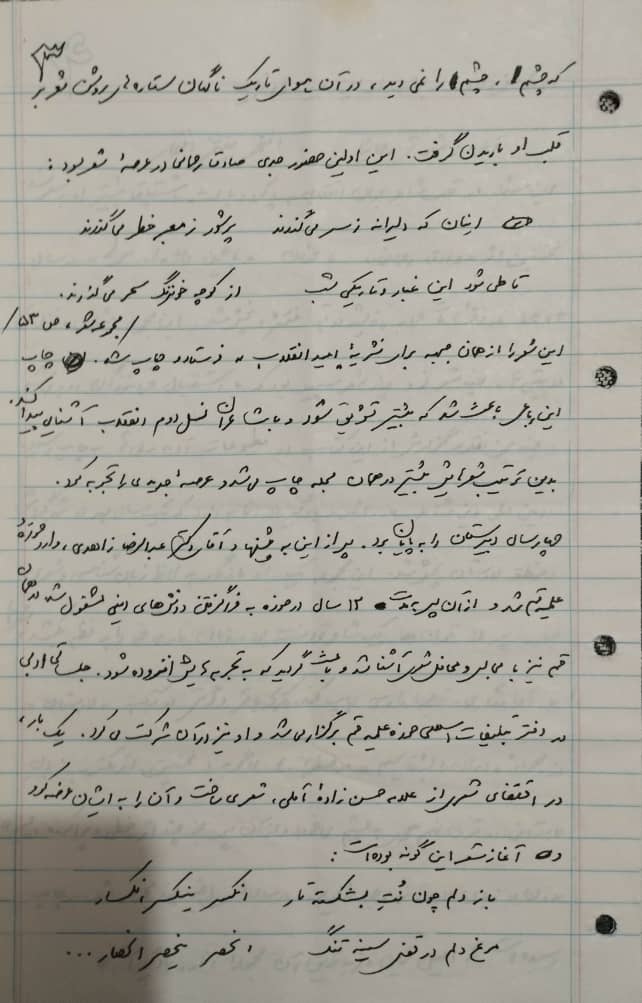 ۳
که چشم، چشم را نمی دید، در آن هوای تاریک ناگهان ستاره های روشن شعر بر
قلب او باریدن گرفت. این اولین حضور جدی صادق رحمانی در عرصهٔ شعر بود:
اینان که دلیرانه ز سر می گذرند پرشور ز معبر خطر می گذرند
تا طی شود این غبار و تاریکی شب از کوچه خونرنگ سحر می گذرند.
/مجموعه شعر، ص ۵۳/
این شعر را از همان جبهه برای نشریهٔ امید انقلاب فرستاد و چاپ شد. چاپ
این رباعی باعث شد که بیشتر تشویق شود و با شاعران نسل دوم انقلاب آشنایی پیدا کند.
بدین ترتیب شعرهایش بیشتر در همان مجله چاپ می شد و عرصهٔ جدیدی را تجربه کرد.
چهار سال دبیرستان را به پایان برد. پس از این به پیشنهاد آقای دکتر عبدالرضا زاهدی، وارد حوزهٔ
علمیه قم شد و از آن پس به مدت ۱۲ سال در حوزه به فراگرفتن دانش های دینی مشغول شد. در همان
قم نیز با مجالس و محافل شعری آشنا شد و باعث گردید که به تجربه هایش افزوده شود. جلساتی ادبی
در دفتر تبلیغات اسلامی حوزه علمیه قم برگزار می شد و او نیز در آن شرکت می کرد. یک بار،
در اقتفای شعری از علامه حسن زادهٔ آملی، شعری ساخت و آن را به ایشان عرضه کرد
که آغاز شعر این گونه بوده است:
باز دلم چون نُتِ بشکسته تار انکسر ینکسر انکسار
مرغ دلم در قفس سینه تنگ انحصر ینحصر انحصار ...